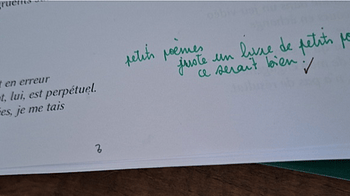 petits poèmes
juste un livre de petits po
ce serait bien.
t en erreur
t, lui, est perpétuel.
es, je me tais